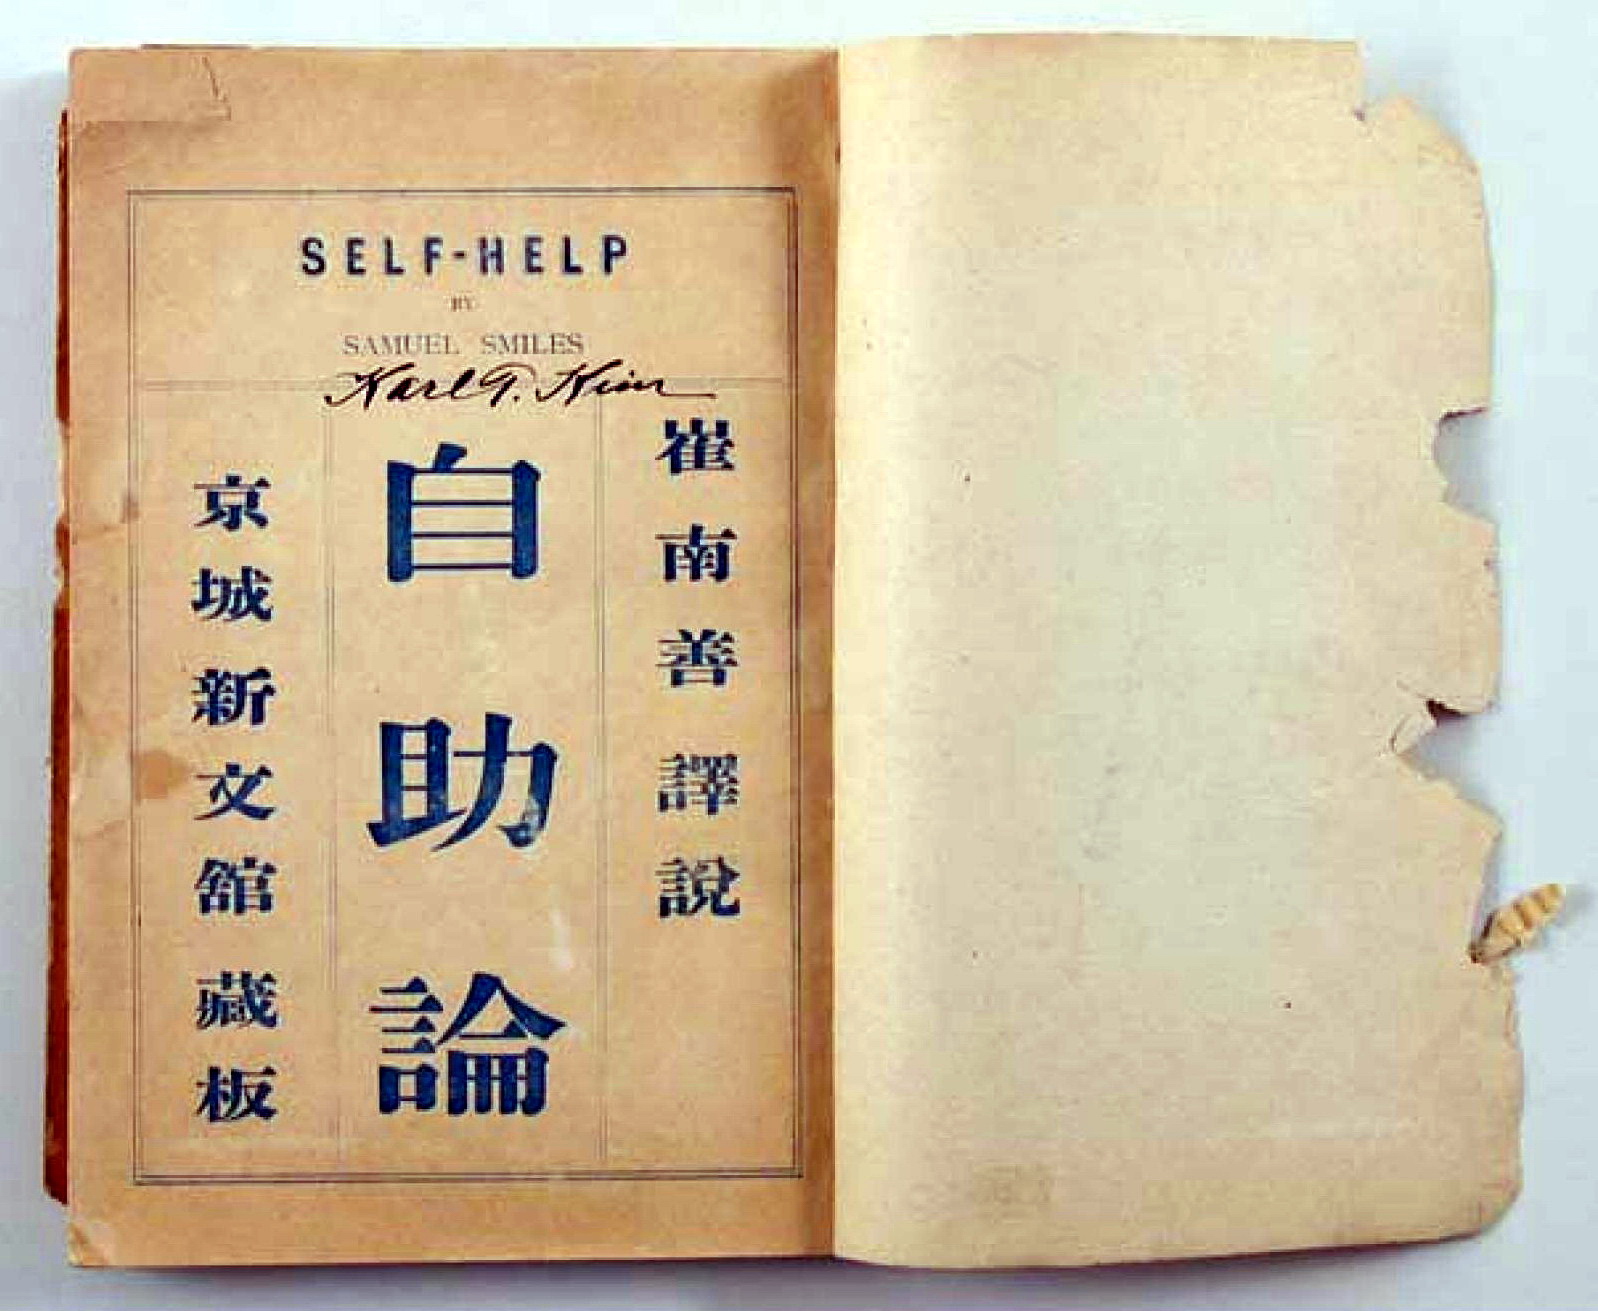 SELF-HELP
BY
SAMUEL SMILES
Karl G. Kim
崔南善譯說
自助論
京城新文舘藏板